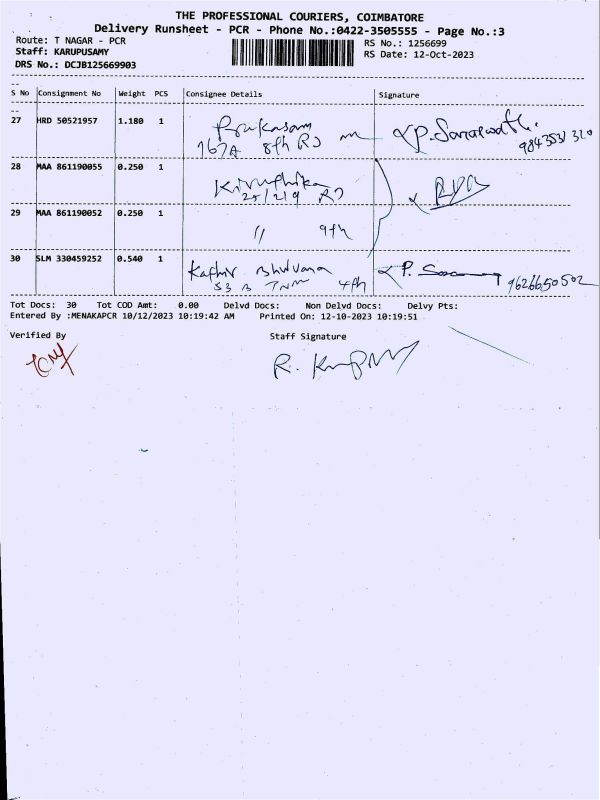 THE PROFESSIONAL COURIERS, COIMBATORE
Delivery Runsheet - PCR - Phone No.:0422-3505555 - Page No.:3
Route: T NAGAR - PCR
RS No.: 1256699
Staff: KARUPUSAMY
RS Date: 12-Oct-2023
DRS No.: DCJB125669903
S No Consignment No Weight PCS Consignee Details Signature
27 HRD 50521957 1.180 1 Prakasam P. Saraswathi
167A 8th RD 9843531320
28 MAA 861190055 0.250 1 Kiruthika
25/219 RD
29 MAA 861190052 0.250 1
" 9th
30 SLM 330459252 0.540 1 Bhuvana P.
53 B 4th 9626650502
Tot Docs: 30 Tot COD Amt: 0.00 Delvd Docs: Non Delvd Docs: Delvy Pts:
Entered By :MENAKAPCR 10/12/2023 10:19:42 AM Printed On: 12-10-2023 10:19:51
Verified By Staff Signature
R.